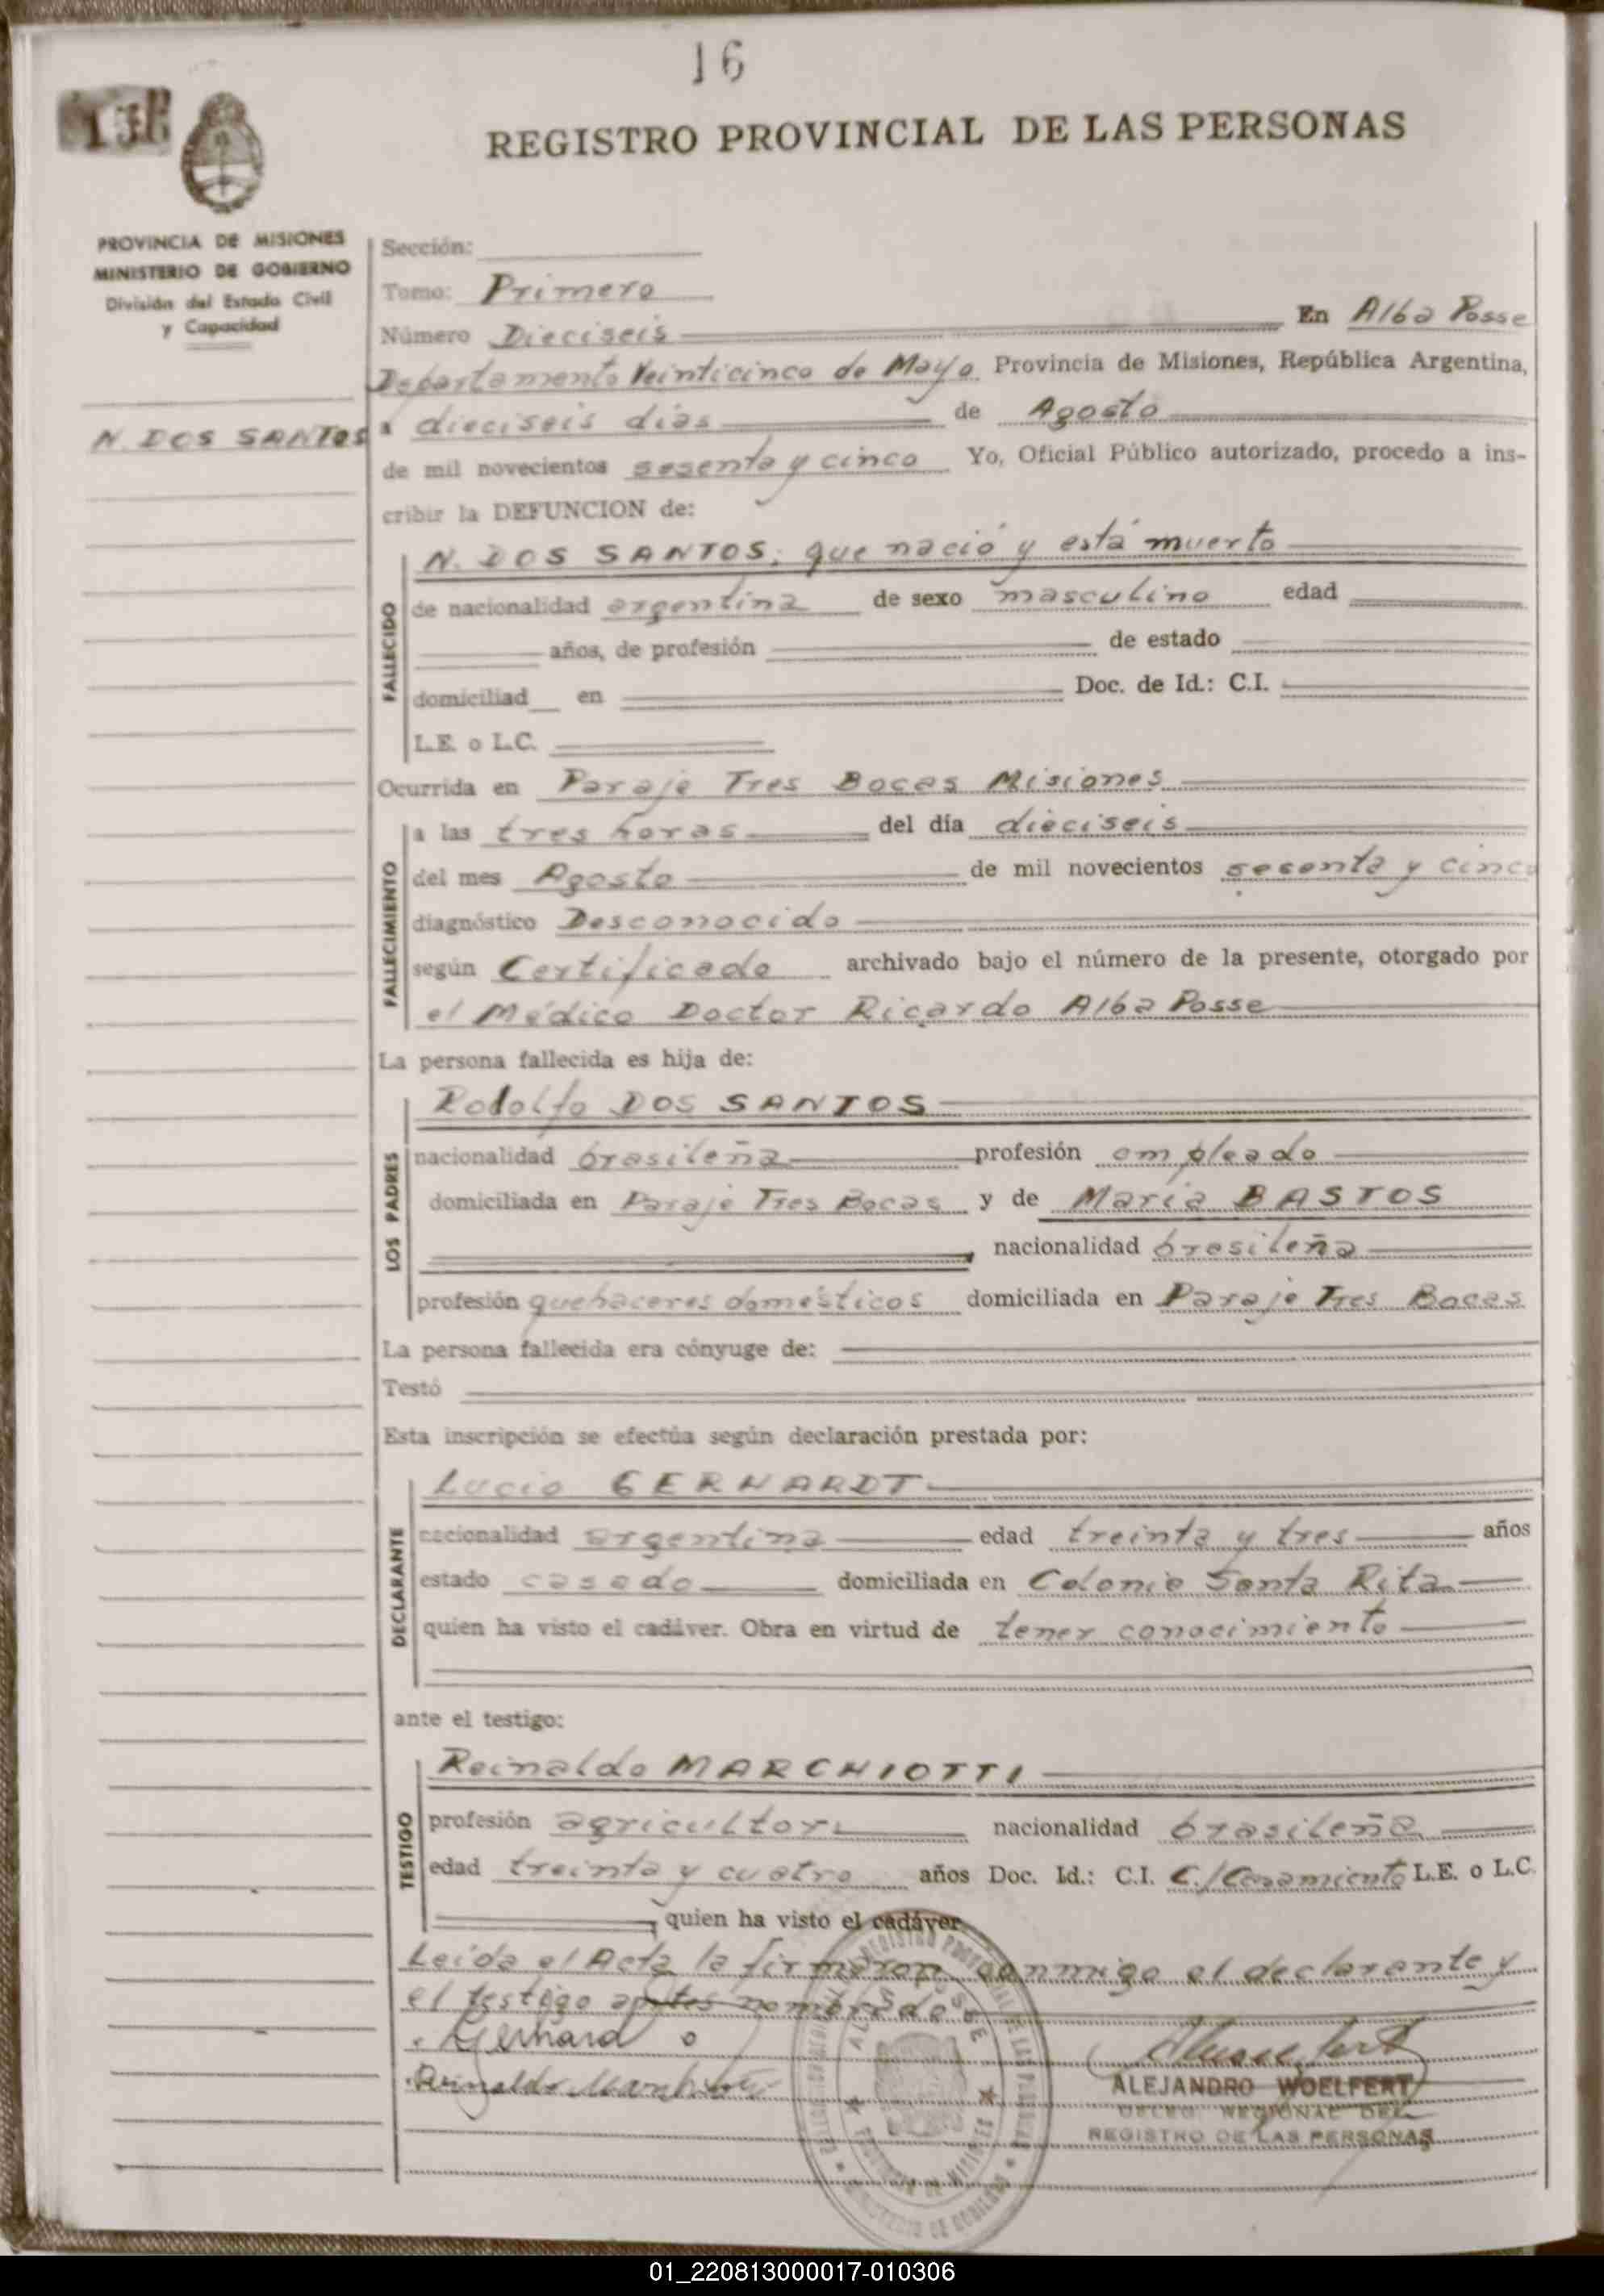 16
138
REGISTRO PROVINCIAL DE LAS PERSONAS
PROVINCIA DE MISIONES
MINISTERIO DE GOBIERNO
División del Estado Civil
y Capacidad
N. DOS SANTOS
Sección:
Tomo: Primero
Número Dieciseis En Alba Posse
Departamento Veinticinco de Mayo Provincia de Misiones, República Argentina,
a dieciseis dias de Agosto
de mil novecientos sesenta y cinco Yo, Oficial Público autorizado, procedo a ins-
cribir la DEFUNCION de:
N. DOS SANTOS; que nació y está muerto
FALLECIDO
de nacionalidad argentina de sexo masculino edad
años, de profesión de estado
domiciliad en Doc. de Id.: C.I.
L.E. o L.C.
Ocurrida en Paraje Tres Bocas Misiones
FALLECIMIENTO
a las tres horas del día dieciseis
del mes Agosto de mil novecientos sesenta y cinco
diagnóstico Desconocido
según Certificado archivado bajo el número de la presente, otorgado por
el Médico Doctor Ricardo Alba Posse
La persona fallecida es hija de:
Rodolfo DOS SANTOS
LOS PADRES
nacionalidad brasileña profesión empleado
domiciliada en Paraje Tres Bocas y de Maria BASTOS
nacionalidad brasileña
profesión quehaceres domésticos domiciliada en Paraje Tres Bocas
La persona fallecida era cónyuge de:
Testó
Esta inscripción se efectúa según declaración prestada por:
Lucio GERHARDT
DECLARANTE
nacionalidad argentina edad treinta y tres años
estado casado domiciliada en Colonia Santa Rita
quien ha visto el cadáver. Obra en virtud de tener conocimiento
ante el testigo:
Reinaldo MARCHIOTTI
TESTIGO
profesión agricultor nacionalidad brasileña
edad treinta y cuatro años Doc. Id.: C.I. C./Casamiento L.E. o L.C.
quien ha visto el cadáver
Leida el Acta la firmaron conmigo el declarante y
el testigo antes nombrado
ALEJANDRO WOELFERT
DELEG. REGIONAL DEL
REGISTRO DE LAS PERSONAS
01_220813000017-010306